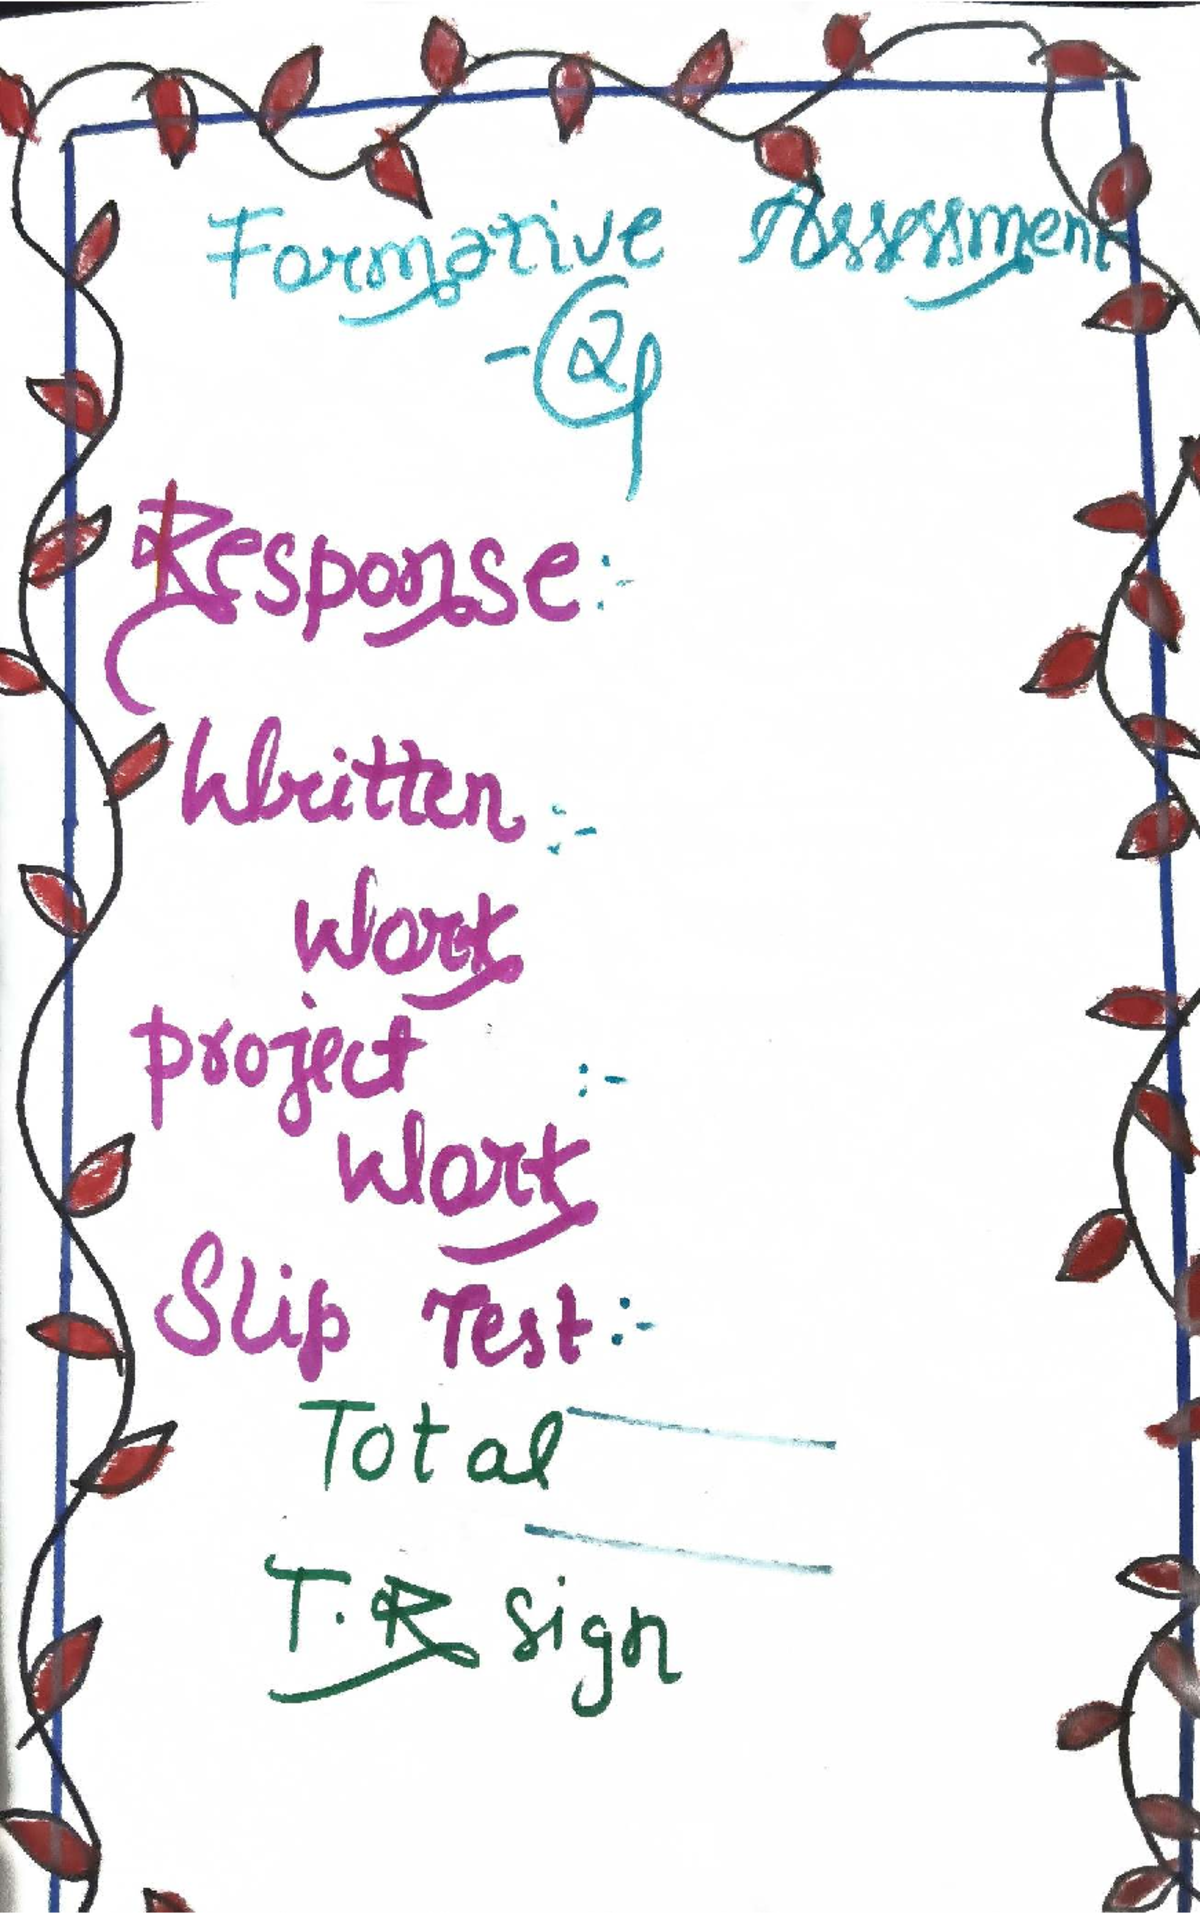 Formative Assessment
- 2
Response:-
Written :-
Work
project :-
Work
Slip Test:-
Total
T.R sign